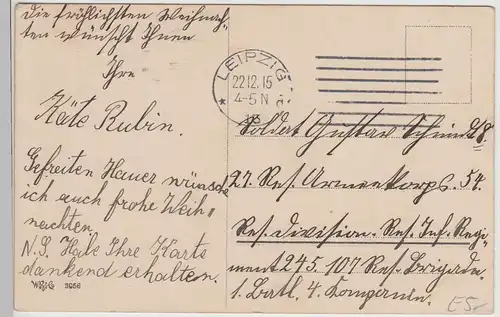 Die fröhlichsten Weihnach-
ten wünscht Ihnen
Ihre
Käte Rubin.
Gefreiten Hauer wünsche
ich auch frohe Weih=
nachten.
N.S. Habe Ihre Karte
dankend erhalten.
3056
LEIPZIG
22.12.15
4-5 N
Soldat Gustav
27. Res. Armeekorps. 54.
Res. Division. Res. Inf. Regi-
ment 245. 107 Res. Brigade.
1. Batl. 4. Kompanie.